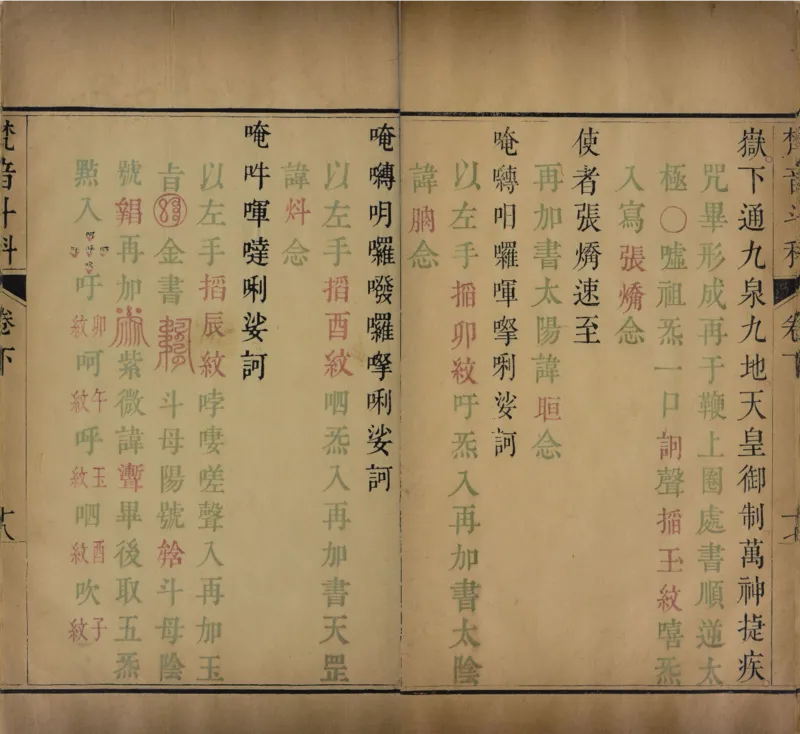 梵音斗科 卷下 十七
嶽下通九泉九地天皇御制萬神捷疾
咒畢形成再于鞭上圈處書順逆太
極〇噓祖炁一口訶聲搯玉紋嘻炁
入寫張燆念
使者張燆速至
再加書太陽諱晅念
唵囀㕽囉㖶㧒唎娑訶
以左手搯卯紋吁炁入再加書太陰
諱朒念
唵囀明囉㗶囉㧒唎娑訶
以左手搯酉紋呬炁入再加書天罡
諱炓念
唵吽㖶噠唎娑訶
以左手搯辰紋哱嘍嗟聲入再加玉
㫖金書斗母陽號斗母陰
號再加紫微諱畢後取五炁
點入吁卯紋呵午紋呼玉紋呬酉紋吹子紋
梵音斗科 卷下 十八